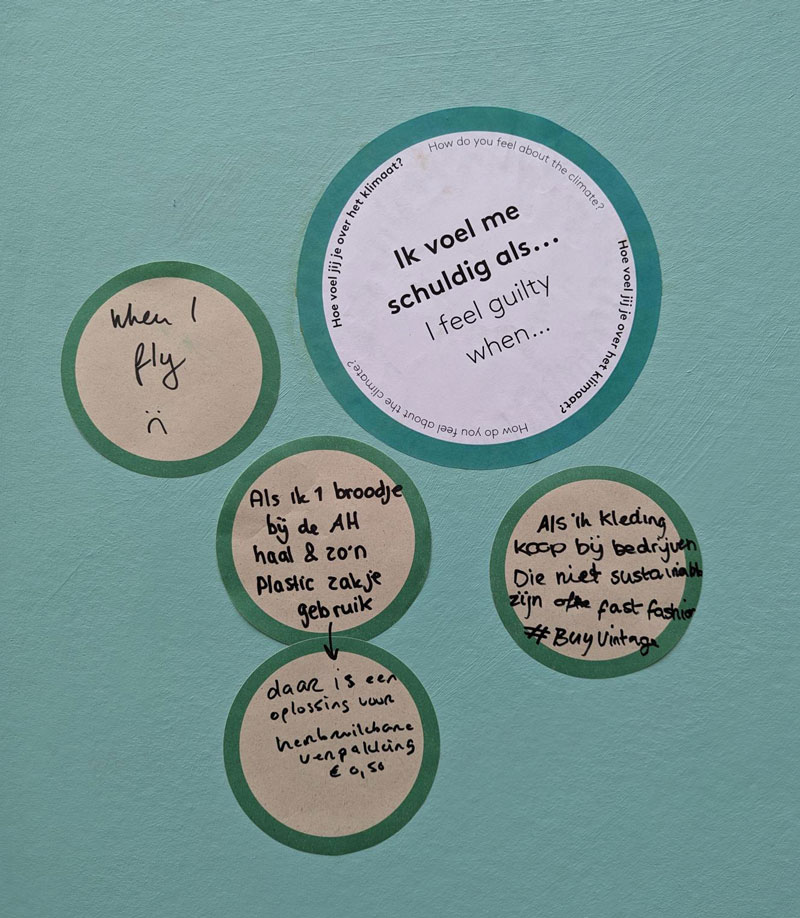 How do you feel about the climate?
Hoe voel jij je over het klimaat?
Hoe voel jij je over het klimaat?
How do you feel about the climate?
Ik voel me
schuldig als...
I feel guilty
when...
When I
fly
:(
Als ik 1 broodje
bij de AH
haal & zo'n
Plastic zakje
gebruik
daar is een
oplossing voor
herbruikbare
verpakking
€ 0,50
Als ik kleding
koop bij bedrijven
Die niet sustainabl
zijn fast fashion
# Buy Vintage